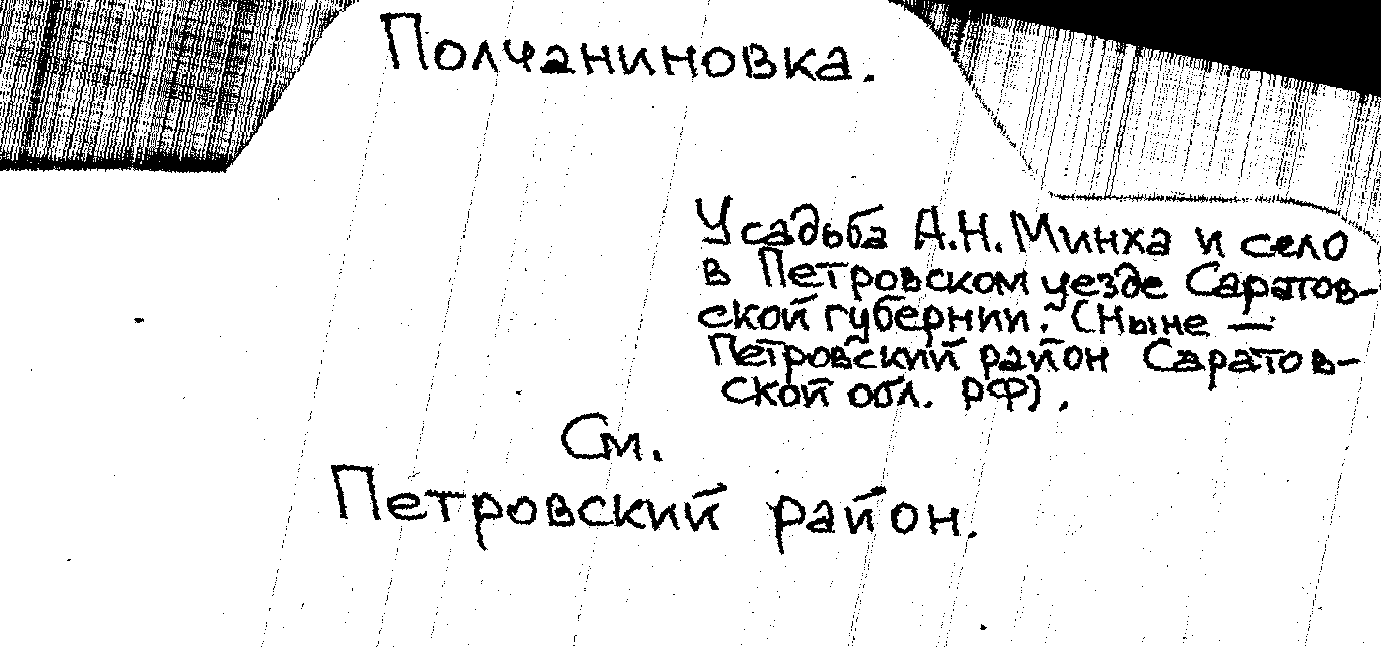 Полчаниновка.
Усадьба А.Н. Минха и село
в Петровском уезде Саратов-
ской губернии. (Ныне —
Петровский район Саратов-
ской обл. РФ).
См.
Петровский район.